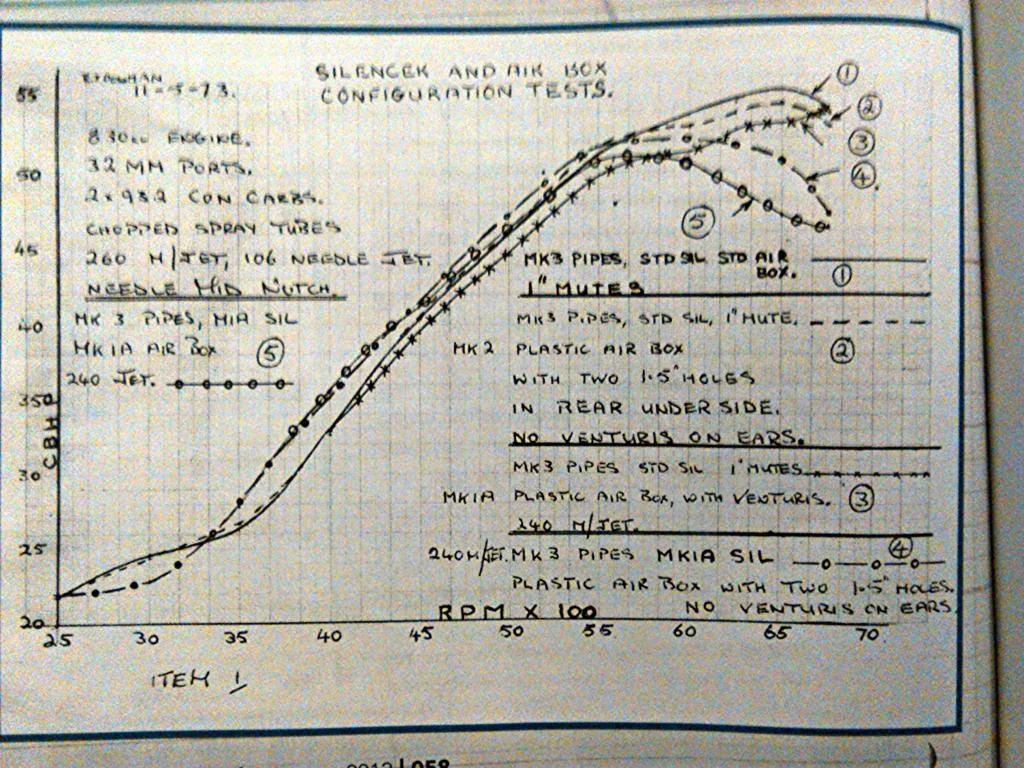 SILENCER AND AIR BOX
CONFIGURATION TESTS.
11-5-73.
830cc ENGINE.
32 MM PORTS.
2x932 CON CARBS.
CHOPPED SPRAY TUBES
260 M/JET, 106 NEEDLE JET.
NEEDLE MID NUTCH.
MK 3 PIPES, MIA SIL
MK1A AIR BOX 5
240 JET.
1
2
3
4.
5
MK3 PIPES, STD SIL STD AIR
BOX. 1
1" MUTES
MK3 PIPES, STD SIL, 1" MUTE.
MK2 PLASTIC AIR BOX 2
WITH TWO 1.5" HOLES
IN REAR UNDER SIDE.
NO VENTURIS ON EARS.
MK3 PIPES STD SIL 1" MUTES
MK1A PLASTIC AIR BOX, WITH VENTURIS. 3
240 M/JET.
240M/JET. MK3 PIPES MK1A SIL 4
PLASTIC AIR BOX WITH TWO 1.5" HOLES.
NO VENTURIS ON EARS
RPM X 100
CBHP
55
50
45
40
35
30
25
20
25 30 35 40 45 50 55 60 65 70
ITEM 1